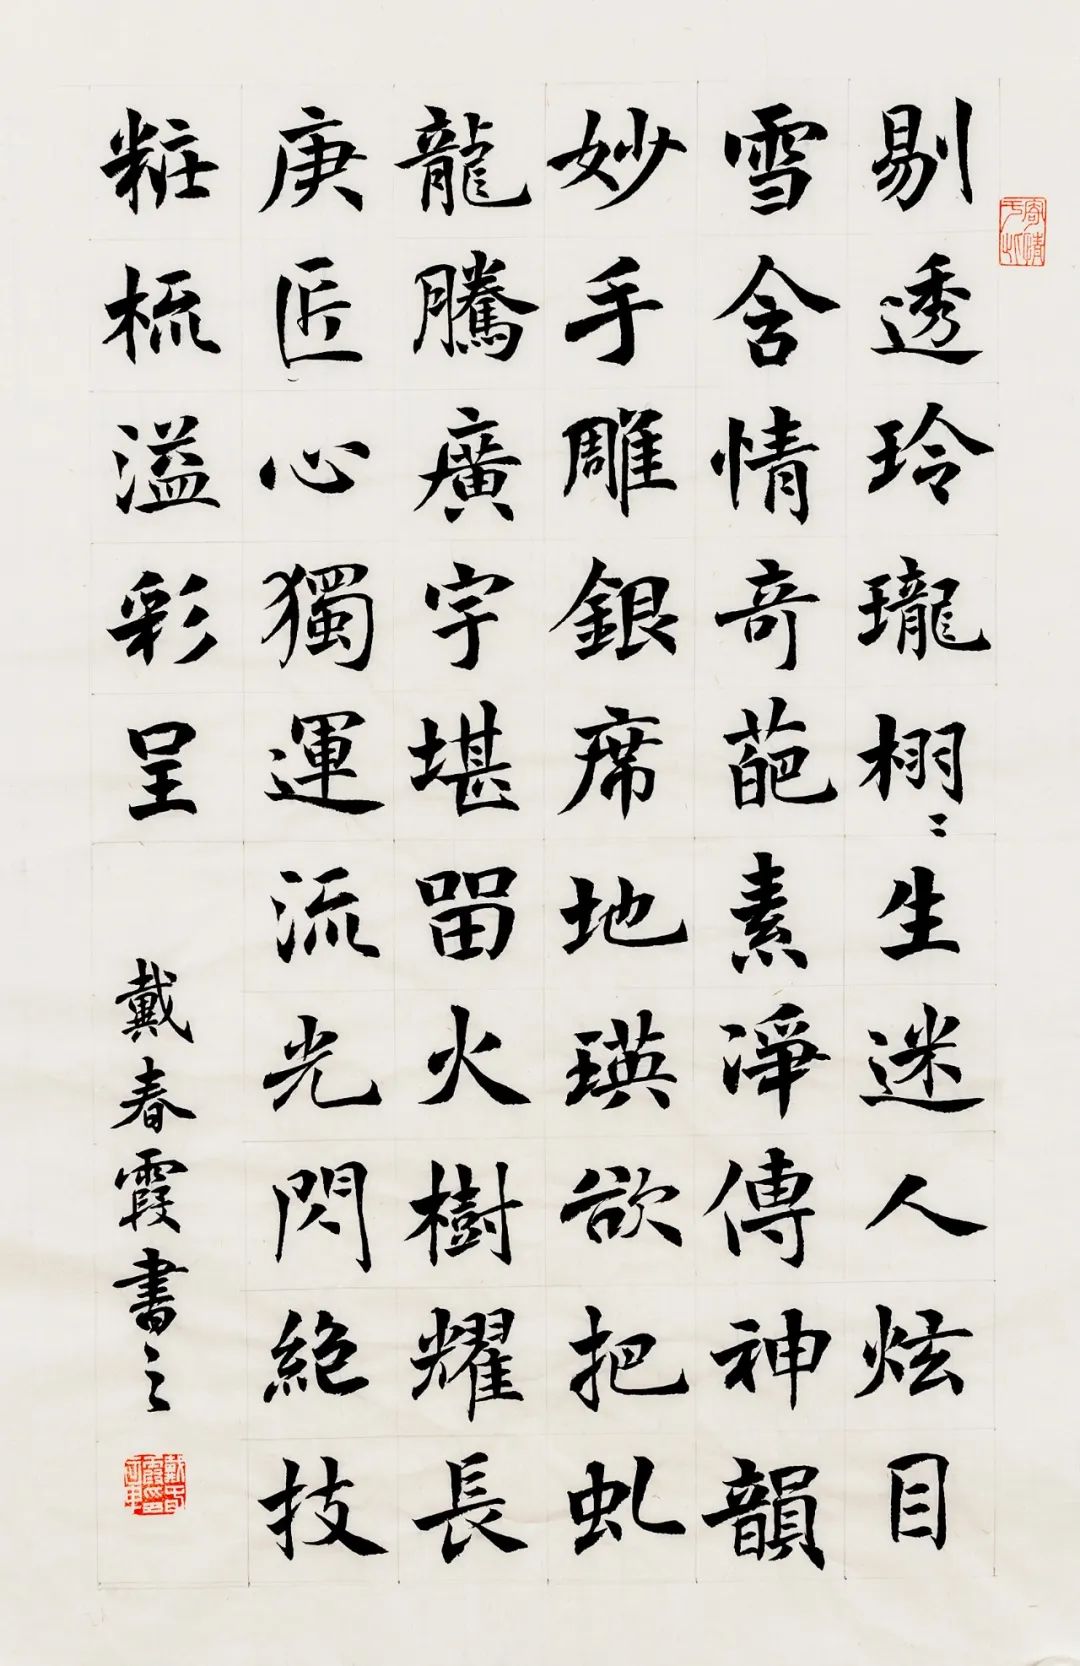 剔透玲瓏栩〻生迷人炫目
雪含情奇葩素淨傳神韻
妙手雕銀席地瑛欲把虬
龍騰廣宇堪留火樹耀長
庚匠心獨運流光閃絕技
粧梳溢彩呈
戴春霞書之